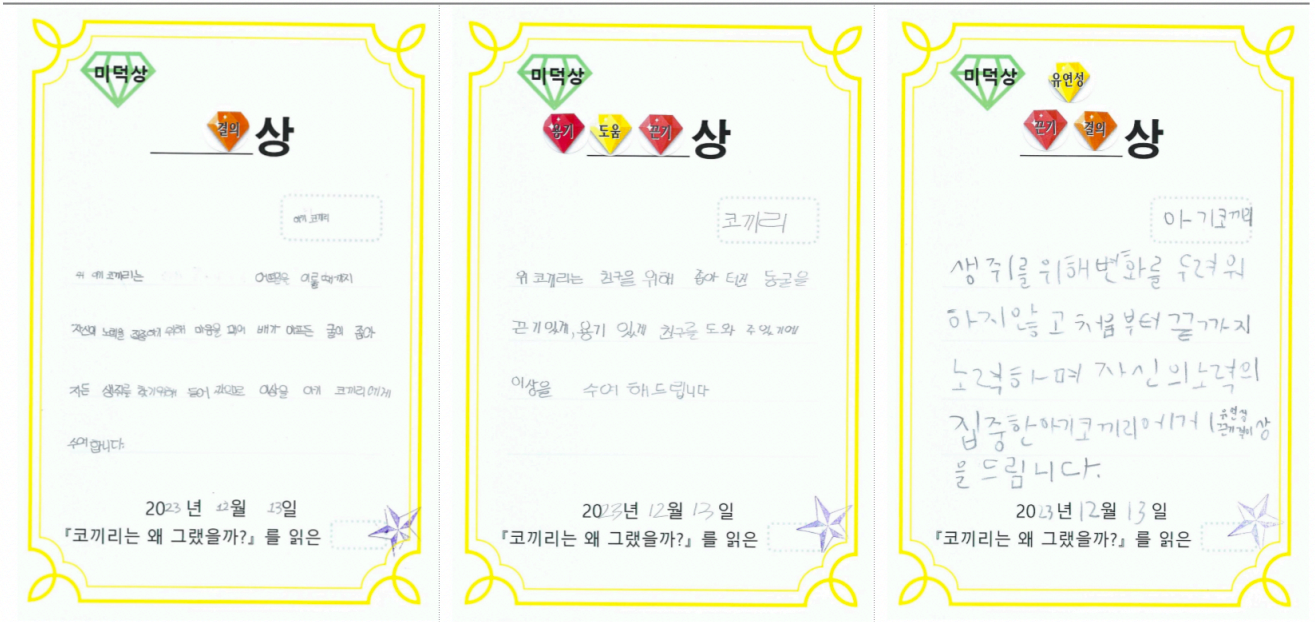 미덕상
결의 상
아기 코끼리
위 아기 코끼리는 어려움을 이룰때까지
자신의 노력을 집중하기 위해 마음을 먹어 배가 아프든 굴이 좁아
지든 생쥐를 찾기위해 들어 이상을 아기 코끼리에게
수여 합니다.
2023 년 12월 13일
『코끼리는 왜 그랬을까?』를 읽은
미덕상
용기 도움 끈기 상
코끼리
위 코끼리는 친구을 위해 좁아 터진 동굴을
끈기있게, 용기 있게 친구를 도와 주었기에
이상을 수여 해드립니다
2023년 12월 13일
『코끼리는 왜 그랬을까?』를 읽은
미덕상 유연성
끈기 결의 상
아기코끼리
생쥐를 위해 변화를 두려워
하지않고 처음부터 끝까지
노력하며 자신의 노력의
집중한 아기코끼리에게 유연성 끈기 결의 상
을 드립니다.
2023년 12월 13일
『코끼리는 왜 그랬을까?』를 읽은